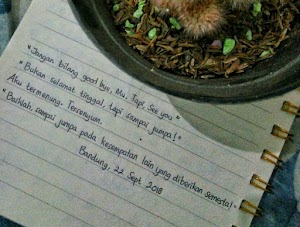 "Jangan bilang good bye, Mu. Tapi, See you"
"Bukan selamat tinggal, tapi sampai jumpa!"
Aku termenung. Tersenyum.
"Baiklah, sampai jumpa pada kesempatan lain yang diberikan semesta!"
Bandung, 22 Sept 2018